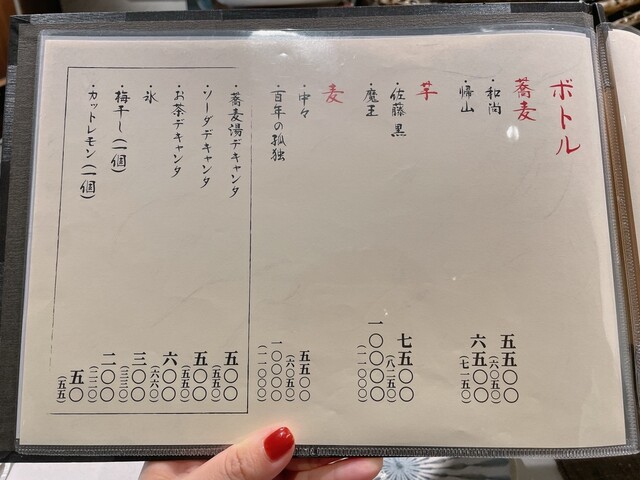 ボトル
蕎麦
・和尚 五五〇〇
(六〇五〇)
・帰山 六五〇〇
(七一五〇)
芋
・佐藤 黒 七五〇〇
(八二五〇)
・魔王 一〇〇〇〇
(一一〇〇〇)
麦
・中々 五五〇〇
(六〇五〇)
・百年の孤独 一〇〇〇〇
(一一〇〇〇)
・蕎麦湯デキャンタ 五〇〇
(五五〇)
・ソーダデキャンタ 五〇〇
(五五〇)
・お茶デキャンタ 六〇〇
(六六〇)
・氷 三〇〇
(三三〇)
・梅干し(一個) 二〇〇
(二二〇)
・カットレモン(一個) 五〇
(五五)